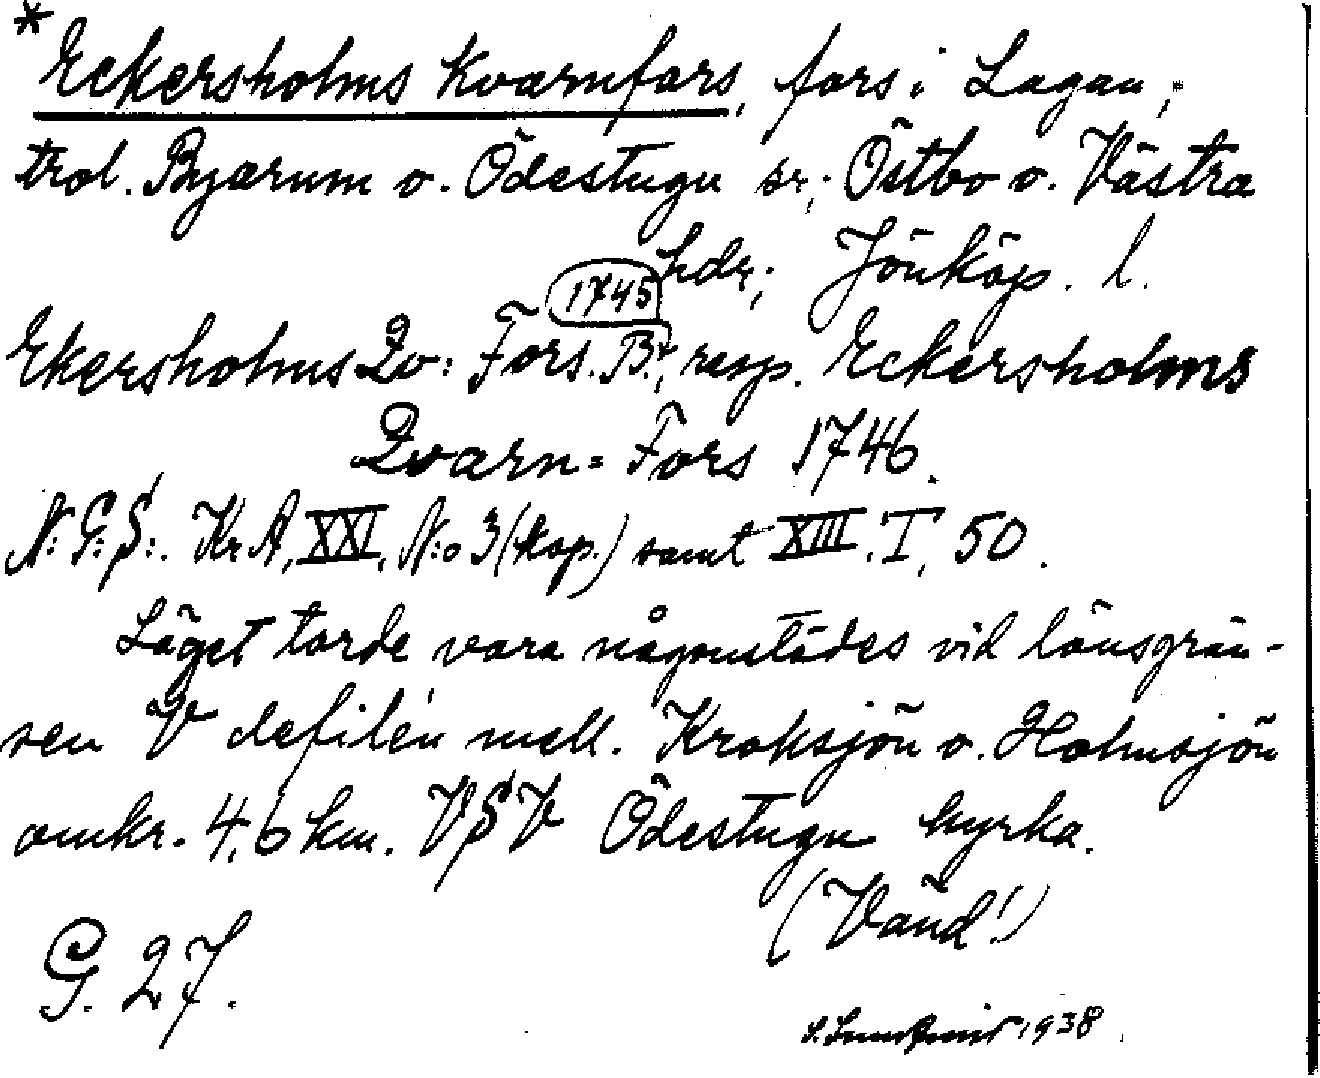 * Eckersholms Kvarnfors, fors i Lagan;
trol. Byarum o. Ödestugu sr; Östbo o. Västra
hdr; Jönköp. l.
1745
Ekersholms Qv: Fors. Br, resp. Eckersholms
Qvarn= Fors 1746.
N:G:S:. Kr A, XXI, N:o 3 (kop.) samt XIII. I, 50.
Läget torde vara någonstädes vid länsgrän-
sen V defilén mell. Kroksjön o. Holmsjön
omkr. 4,6 km. VSV Ödestugu kyrka.
(Vänd!)
G. 27.
1938